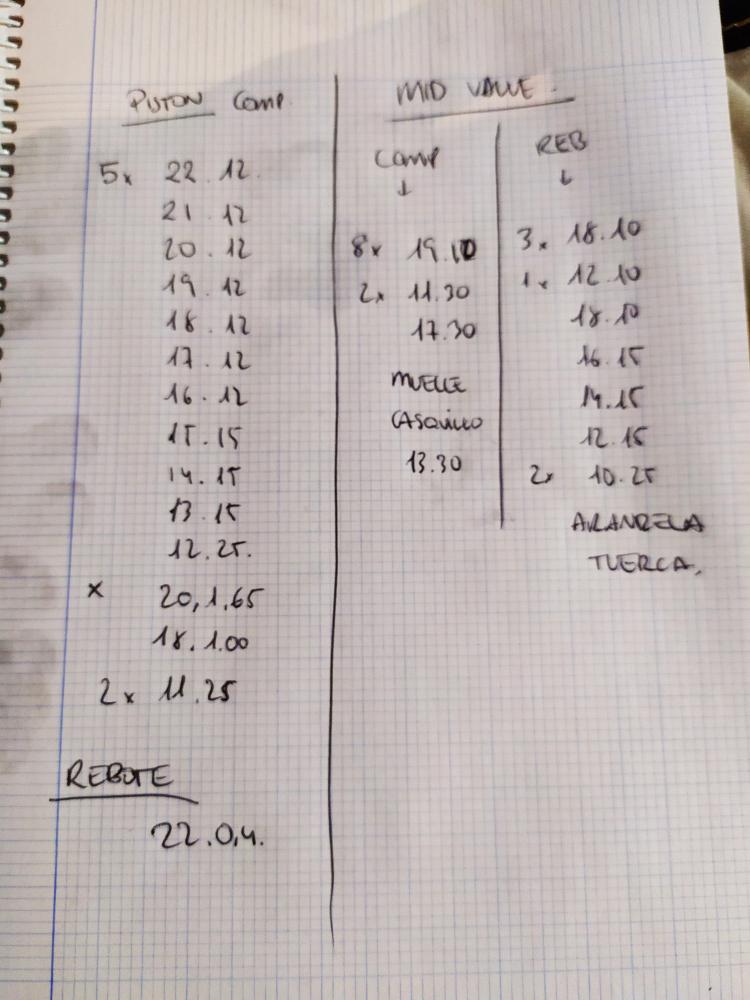 PISTON COMP.
5x 22.12.
21.12
20.12
19.12
18.12
17.12
16.12
15.15
14.15
13.15
12.25.
x 20,1,65
18.1.00
2x 11.25
REBOTE
22.0,4.
MID VALVE.
COMP
↓
8x 19.10
2x 11.30
17.30
MUELLE
CASQUILLO
13.30
REB
↓
3x 18.10
1x 12.10
18.10
16.15
14.15
12.15
2x 10.25
ARANDELA
TUERCA,